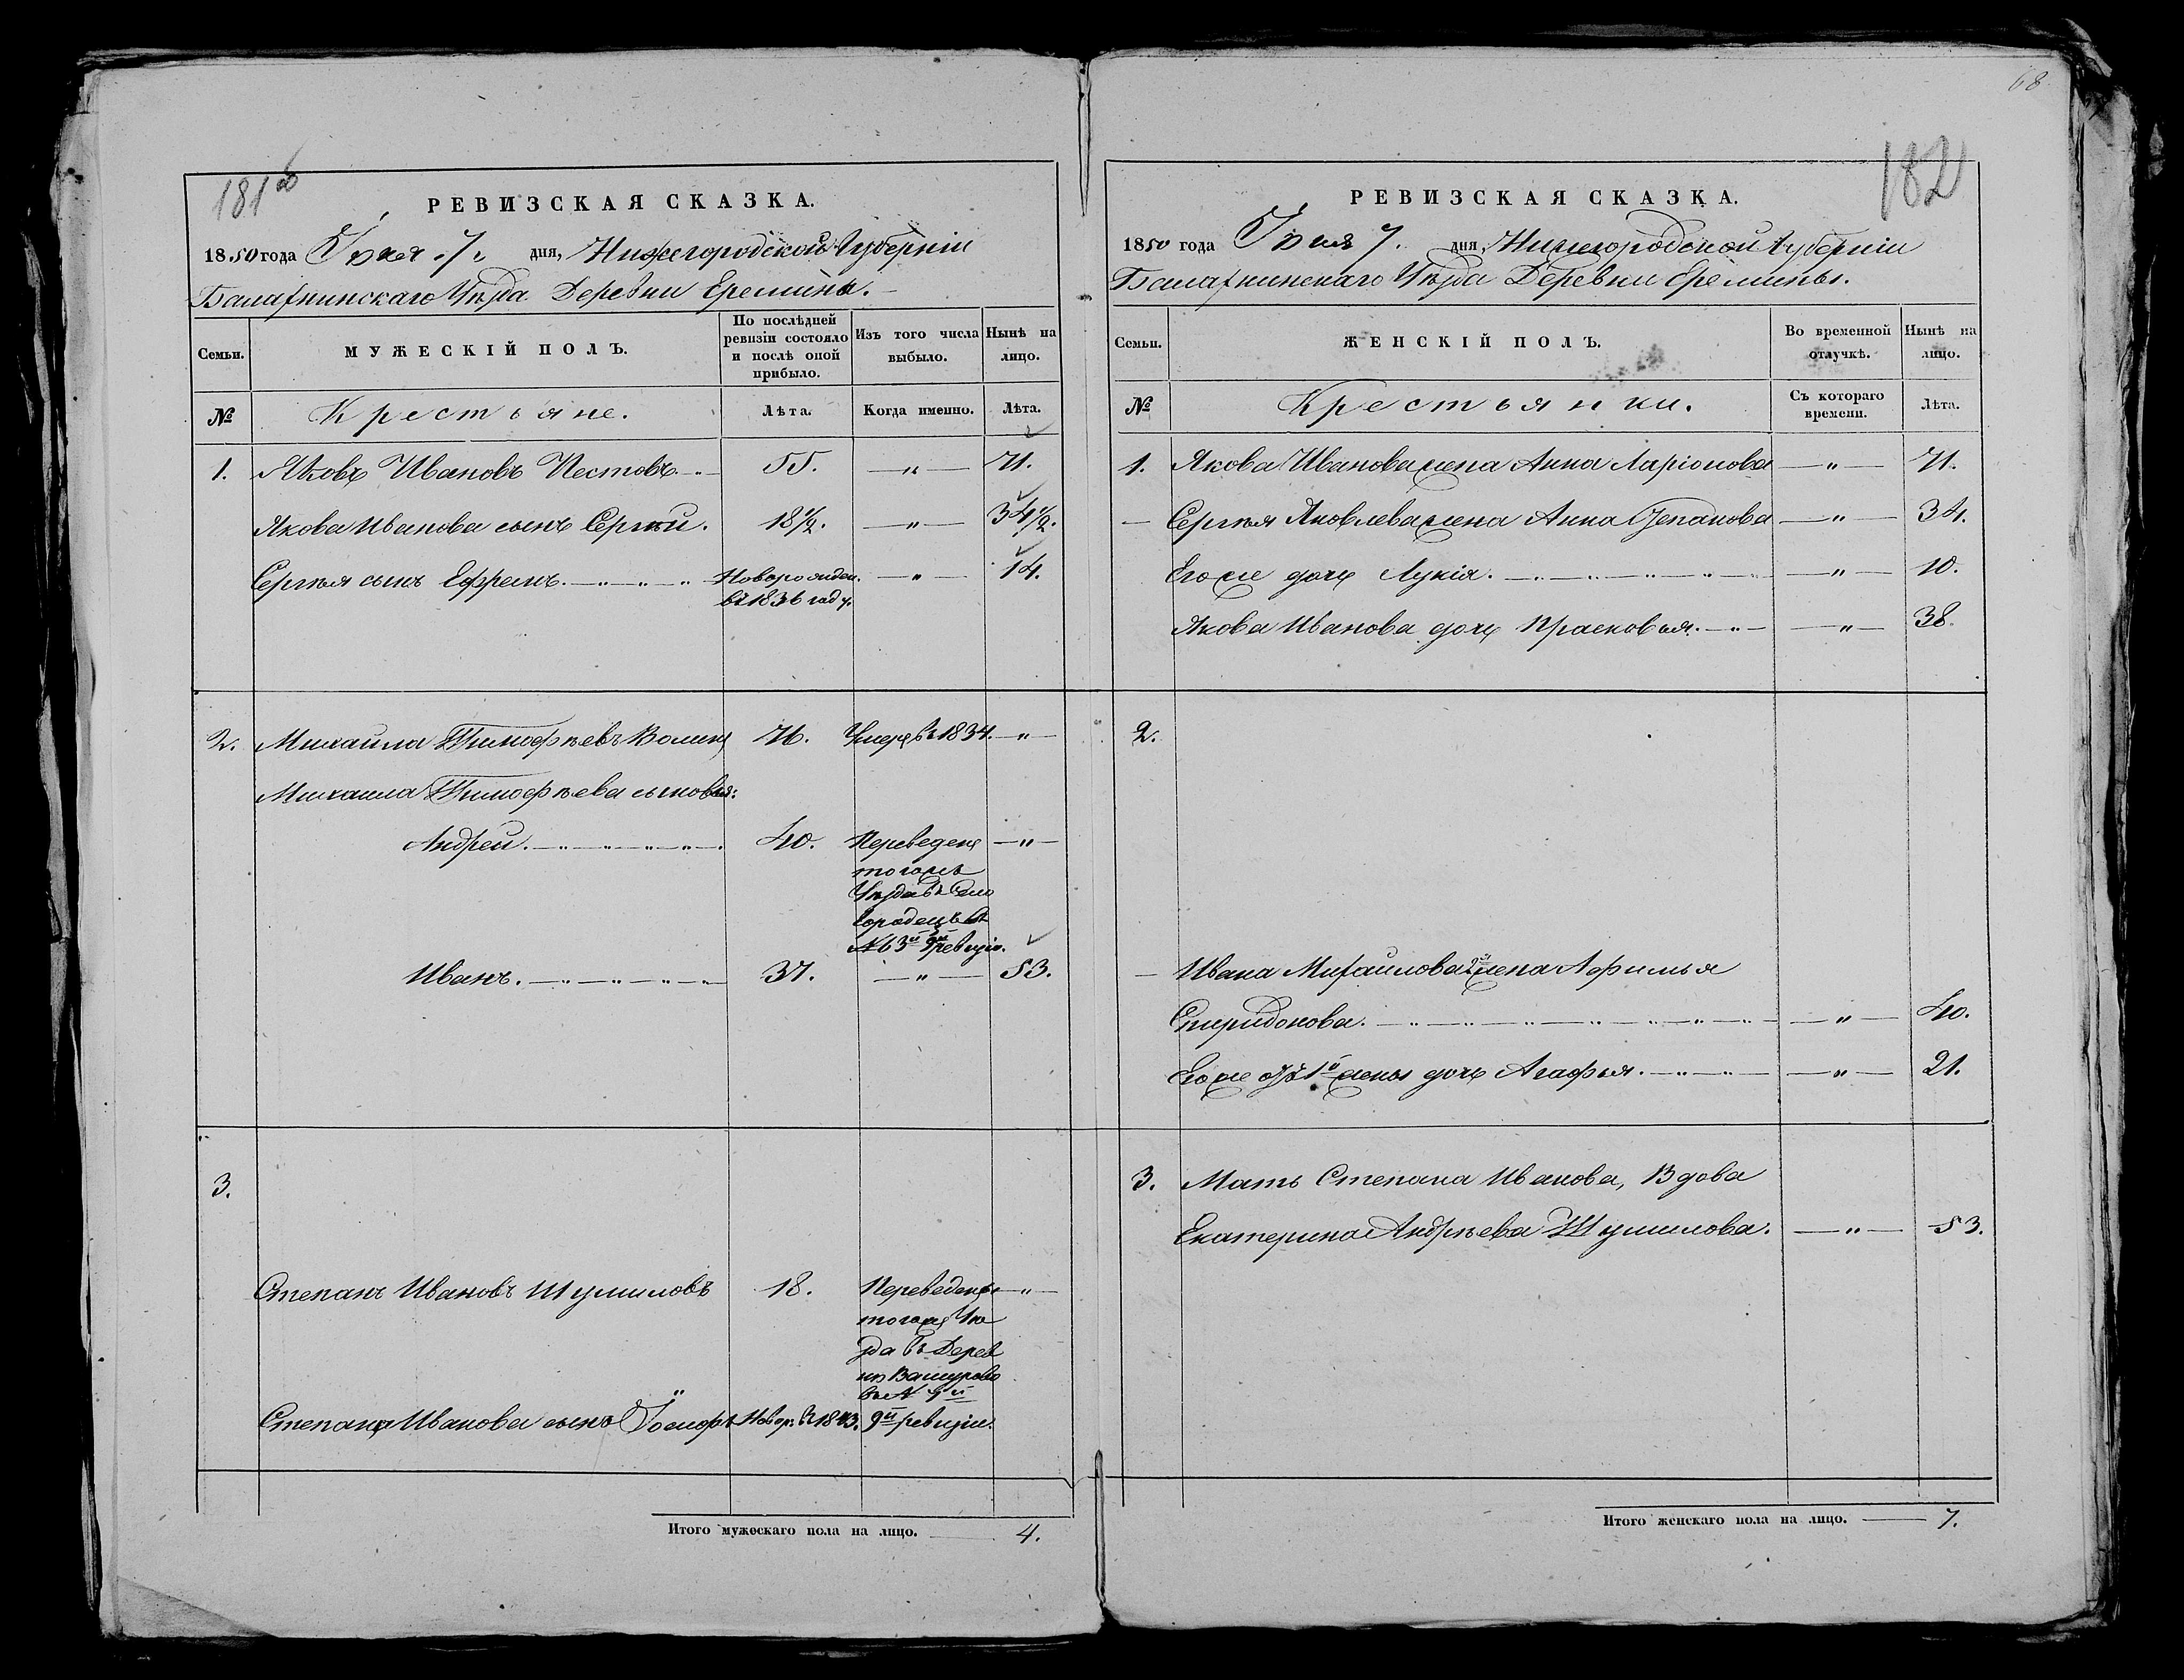 181 об
РЕВИЗСКАЯ СКАЗКА.
1850 года Іюня 7. дня, Нижегородской Губерніи
Балахнинскаго Уѣзда Деревни Еремины.
Семьи.
МУЖЕСКІЙ ПОЛЪ.
По послѣдней ревизіи состояло и послѣ оной прибыло.
Изъ того числа выбыло.
Нынѣ на лицо.
№
Крестьяне.
Лѣта.
Когда именно.
Лѣта.
1. Яковъ Ивановъ Пестовъ 55. — " — 71.
Якова Иванова сынъ Сергѣй. 18½. — " — 34½.
Сергѣя сынъ Ефремъ. Новорожден. — " — 14.
въ 1836 году.
2. Михаила Тимофѣевъ 76. Умеръ въ 1834. — " —
Михаила Тимофѣева сыновья:
Андрей. 40. Переведенъ — " —
тогожъ
Уѣзда въ Село
Городецъ въ
№ 63й 9й ревизіи.
Иванъ. 37. — " — 53.
3.
Степанъ Ивановъ Шумиловъ 18. Переведенъ — " —
тогожъ Уѣ
зда въ Дерев
ню
въ №
Степана Иванова сынъ Іосифъ Новор. въ 1843. 9й ревизіи.
Итого мужескаго пола на лицо. 4.
68
182
РЕВИЗСКАЯ СКАЗКА.
1850 года Іюня 7. дня, Нижегородской Губерніи
Балахнинскаго Уѣзда Деревни Еремины.
Семьи.
ЖЕНСКІЙ ПОЛЪ.
Во временной отлучкѣ.
Нынѣ на лицо.
№
Крестьянки.
Съ котораго времени.
Лѣта.
1. Якова Иванова жена Анна Ларіонова — " — 71.
— Сергѣя Яковлева жена Анна Степанова — " — 34.
Егоже дочь Лукія. — " — 10.
Якова Иванова дочь Прасковья. — " — 38.
2.
— Ивана Михайлова 2я жена Афимья
Спиридонова. — " — 40.
Егоже отъ 1й жены дочь Агафья. — " — 21.
3. Мать Степана Иванова, Вдова
Екатерина Андрѣева Шумилова. — " — 53.
Итого женскаго пола на лицо. 7.